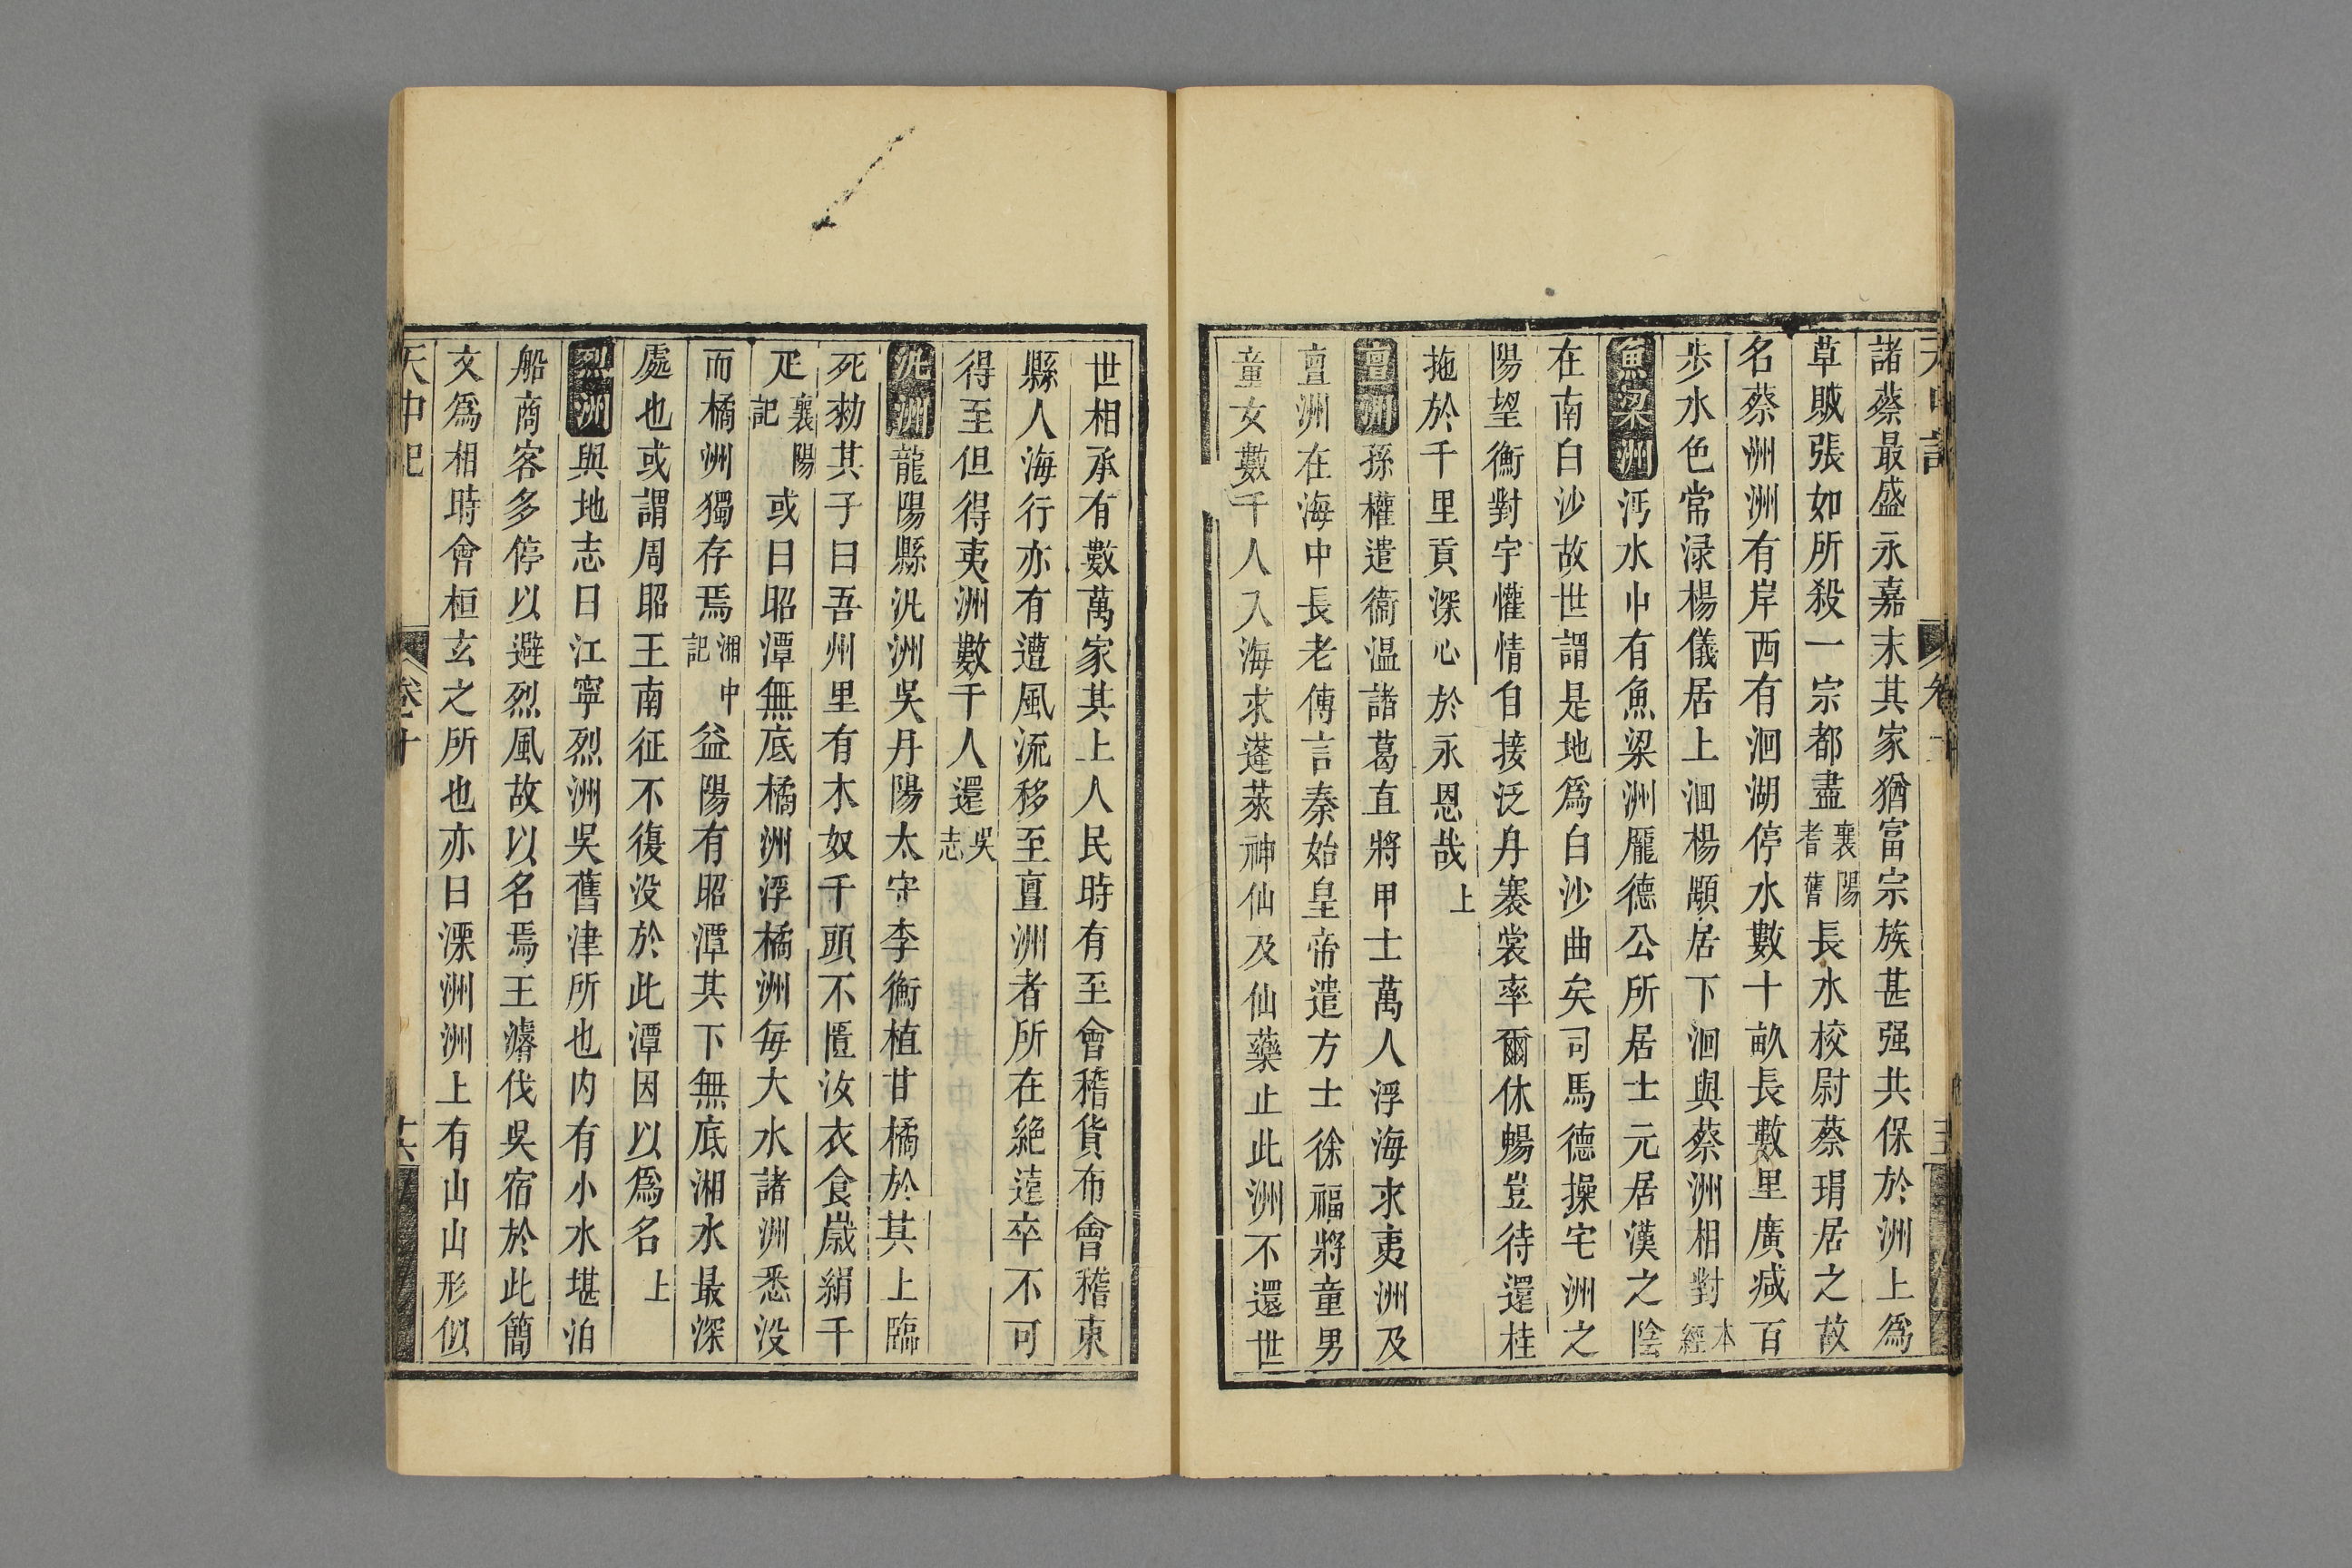 天中記 卷十
諸蔡最盛永嘉末其家猶富宗族甚强共保於洲上爲
草賊張如所殺一宗都盡襄陽耆舊長水校尉蔡瑁居之故
名蔡洲洲有岸西有洄湖停水數十畝長數里廣減百
步水色常渌楊儀居上洄楊顒居下洄與蔡洲相對本經
魚梁洲沔水中有魚梁洲龐德公所居士元居漢之陰
在南白沙故世謂是地爲白沙曲矣司馬德操宅洲之
陽望衡對宇懽情自接泛舟褰裳率爾休暢豈待還桂
拖於千里貢深心於永恩哉上
亶洲孫權遣衞温諸葛直將甲士萬人浮海求夷洲及
亶洲在海中長老傳言秦始皇帝遣方士徐福將童男
童女數千人入海求蓬萊神仙及仙藥止此洲不還世
世相承有數萬家其上人民時有至會稽貨布會稽東
縣人海行亦有遭風流移至亶洲者所在絶遠卒不可
得至但得夷洲數千人還吳志
氿洲龍陽縣氿洲吳丹陽太守李衡植甘橘於其上臨
死勑其子曰吾州里有木奴千頭不匱汝衣食嵗絹千
疋襄陽記或曰昭潭無底橘洲浮橘洲每大水諸洲悉没
而橘洲獨存焉湘中記益陽有昭潭其下無底湘水最深
處也或謂周昭王南征不復没於此潭因以爲名上
烈洲與地志曰江寧烈洲吳舊津所也内有小水堪泊
船商客多停以避烈風故以名焉王濬伐吳宿於此簡
文爲相時會桓玄之所也亦曰溧洲洲上有山山形似
天中記 卷十 十六